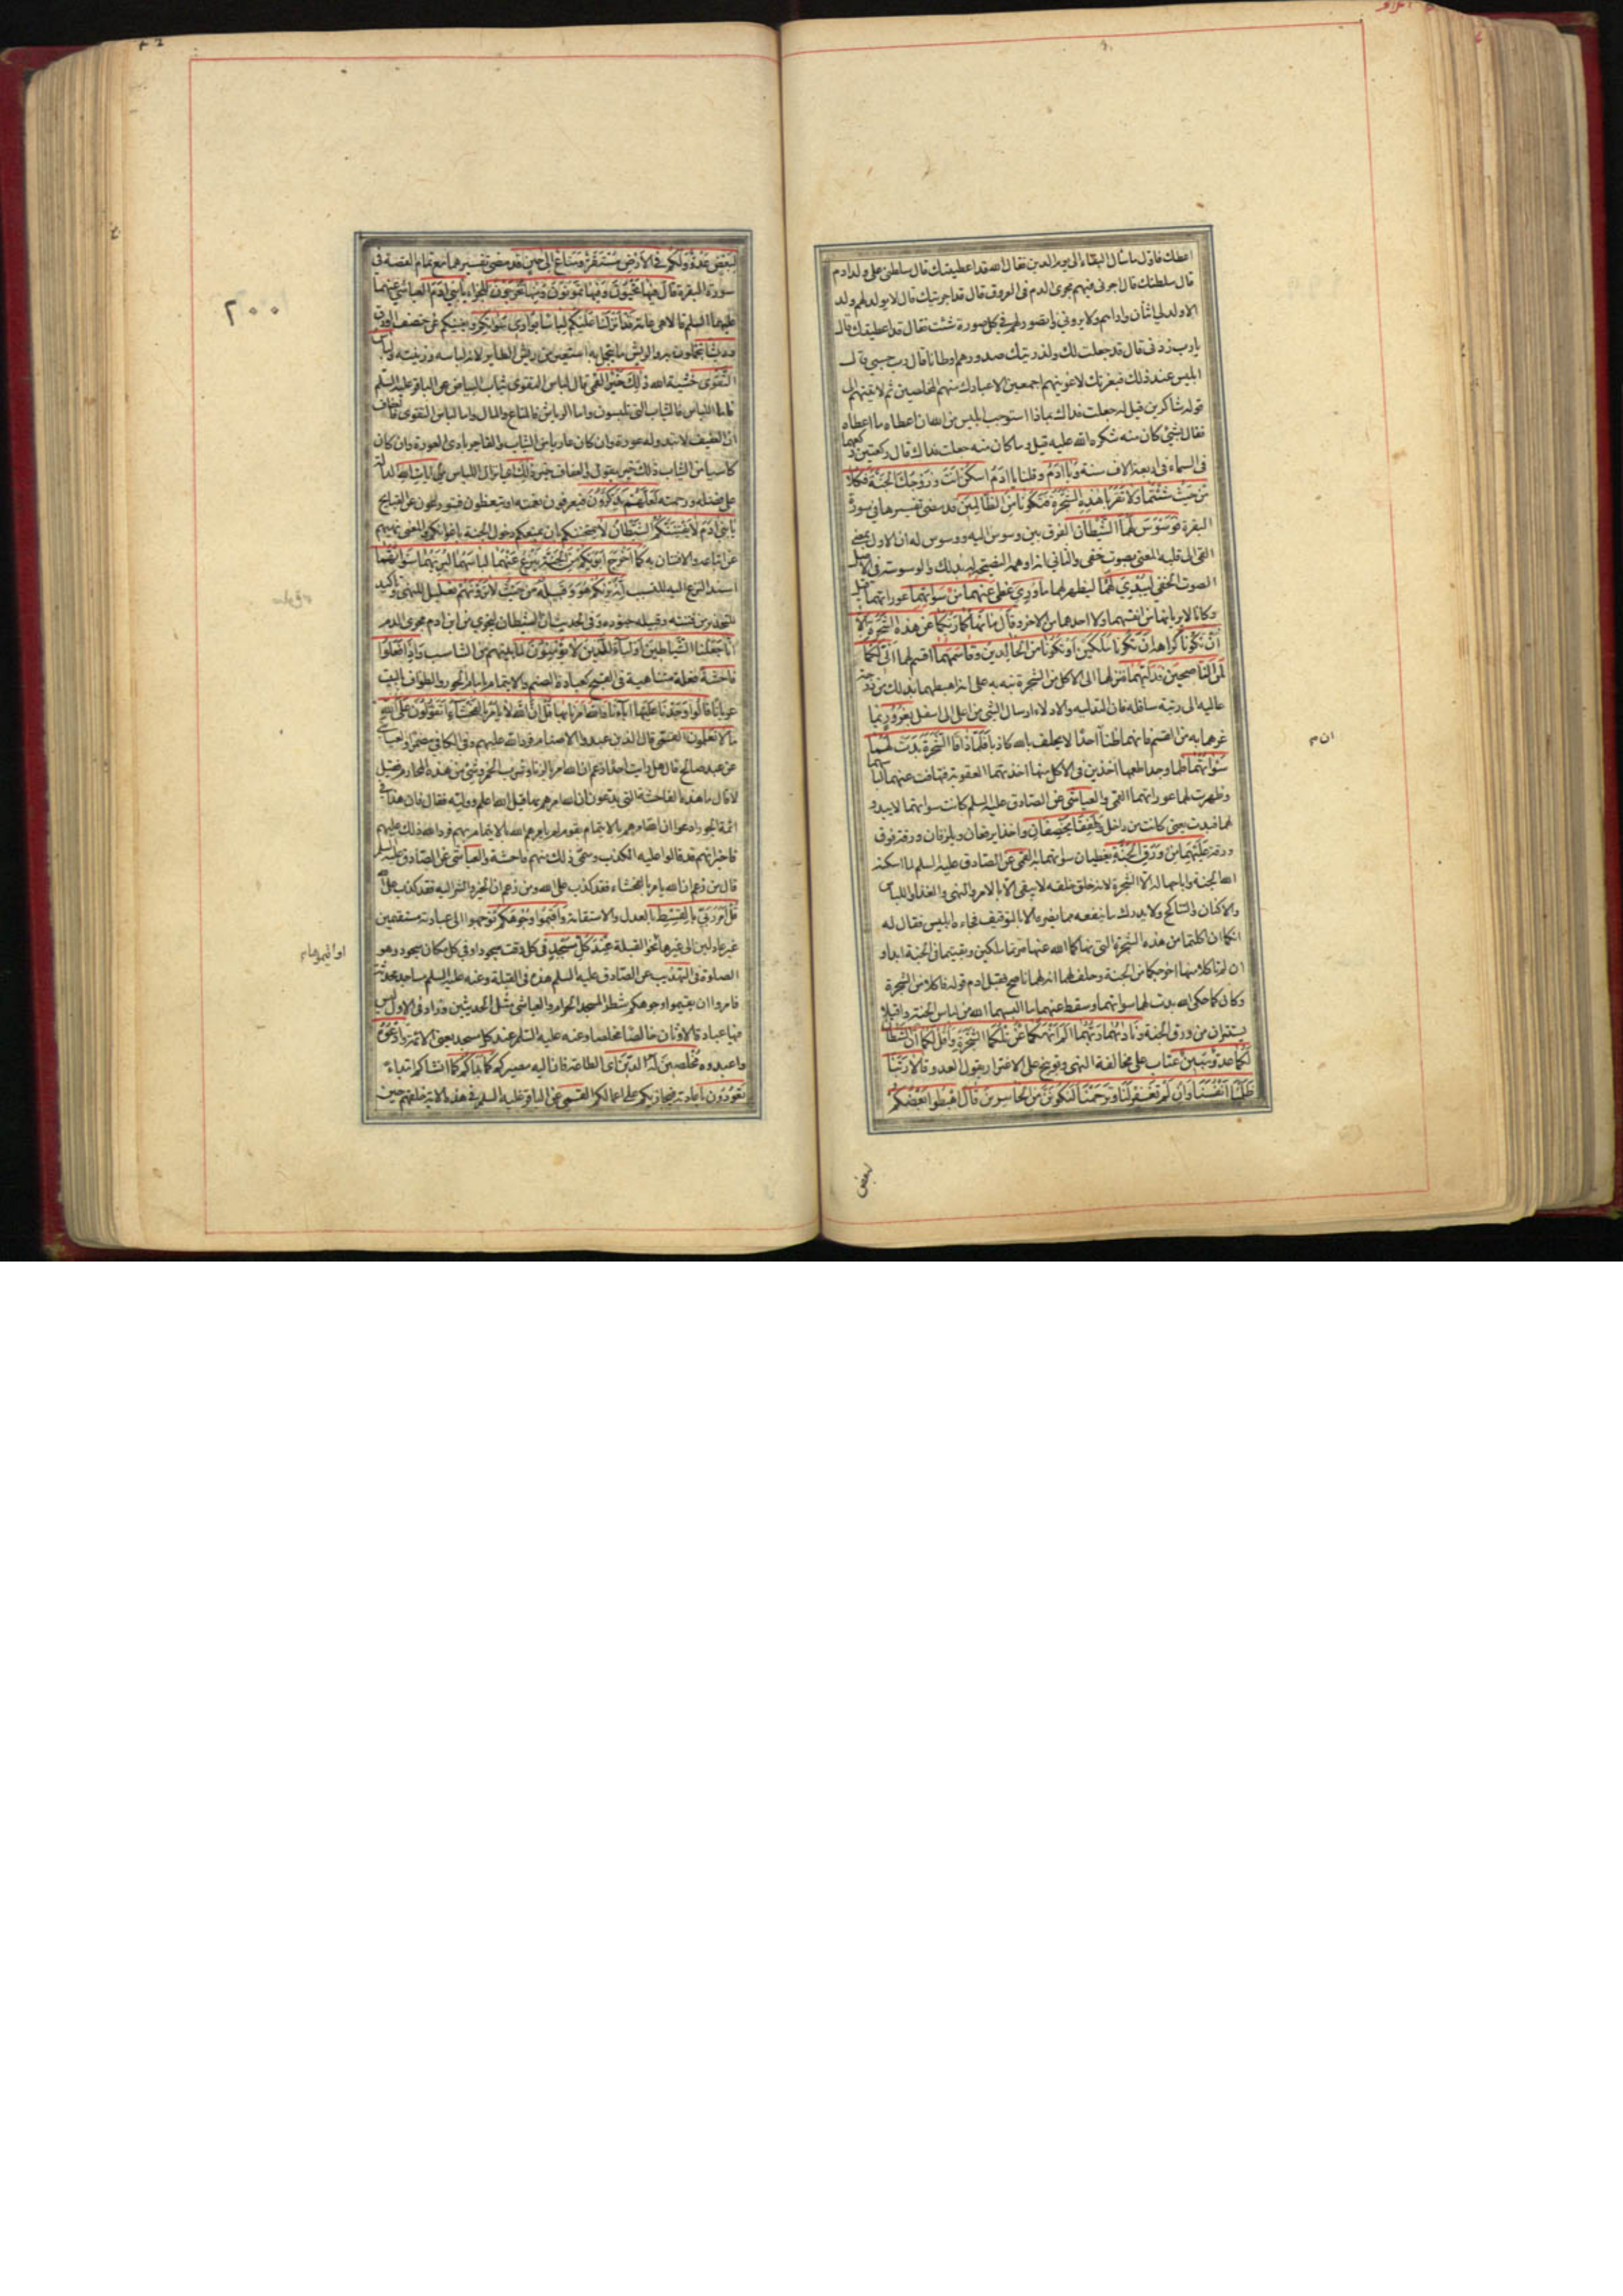 اعطك فاول ما سأل البقاء الى يوم الدين فقال الله قد اعطيتك قال سلطنى على ولد ادم
قال سلطتك قال اجرنى فيهم مجرى الدم فى العروق قال قد اجريتك قال لا يولد لهم ولد
الا ولد لى اثنان واراهم ولا يرونى واتصور لهم فى كل صورة شئت فقال قد اعطيتك قال
يا رب زدنى قال قد جعلت لك ولذريتك صدورهم اوطانا قال رب حسبى قال
ابليس عند ذلك فبعزتك لاغوينهم اجمعين الا عبادك منهم المخلصين ثم لاتينهم الى
قوله شاكرين قيل له جعلت فداك بماذا استوجب ابليس من الله ان اعطاه ما اعطاه
فقال بشئ كان منه شكره الله عليه قيل وما كان منه جعلت فداك قال ركعتين ركعهما
فى السماء فى اربعة الاف سنة وَيَا ادَمُ وقلنا يا ادَمُ اسكُنْ اَنْتَ وَزَوْجُكَ الْجَنَّةَ فَكُلا
مِنْ حَيْثُ شِئْتُما وَلا تَقْرَبا هذِهِ الشَّجَرَةَ فَتَكُونا مِنَ الظّالِمِينَ قد مضى تفسيرها فى سورة
البقرة فَوَسْوَسَ لَهُمَا الشَّيْطانُ الفرق بين وسوس اليه ووسوس له ان الاول بمعنى
القى الى قلبه المعنى بصوت خفى والثانى انه اوهمه النصيحة له بذلك والوسوسة فى الاصل
الصوت الخفى لِيُبْدِيَ لَهُما ليظهر لهما ما وُرِيَ غطى عَنْهُما مِنْ سَوْاتِهِما عوراتهما قيل
وكانا لا يريانها من انفسهما ولا احدهما من الاخر وَقالَ ما نَهيكُما رَبُّكُما عَنْ هذِهِ الشَّجَرَةِ اِلا
اَنْ تَكُونا كراهة ان تكونا مَلَكَيْنِ اَوْ تَكُونا مِنَ الْخالِدِينَ وَقاسَمَهُما اقسم لهما اِنّى لَكُما
لَمِنَ النّاصِحِينَ فَدَلّيهُما فنزلهما الى الاكل من الشجرة نبه به على انه اهبطهما بذلك من درجة
عالية الى رتبة سافلة فان التدلية والادلاء ارسال الشئ من اعلى الى اسفل بِغُرُورٍ بما
غرهما به من القسم فانهما ظنا ان احدا لا يحلف بالله كاذبا فَلَمّا ذاقَا الشَّجَرَةَ بَدَتْ لَهُما
سَوْاتُهُما فلما وجدا طعمها اخذين فى الاكل منها اخذتهما العقوبة فتهافت عنهما لباسهما
وظهرت لهما عوراتهما القمى والعياشى عن الصادق عليه السلم كانت سواتهما لا تبدو
لهما فبدت يعنى كانت من داخل وَطَفِقا يَخْصِفانِ واخذا يرقعان ويلزقان ورقة فوق
ورقة عَلَيْهِما مِنْ وَرَقِ الْجَنَّةِ يغطيان سواتهما به القمى عن الصادق عليه السلم لما اسكنه
الله الجنة واباحها له الا الشجرة لانه خلق خلقه لا يبقى الا بالامر والنهى والغذاء واللباس
والاكنان والتناكح ولا يدرك ما ينفعه مما يضره الا بالتوقيف فجاءه ابليس فقال له
انكما ان اكلتما من هذه الشجرة التى نهاكما الله عنها صرتما ملكين وبقيتما فى الجنة ابدا و
ان لم تاكلا منها اخرجكما من الجنة وحلف لهما انه لهما ناصح فقبل ادم قوله فاكلا من الشجرة
وكان كما حكى الله بدت لهما سواتهما وسقط عنهما ما البسهما الله من لباس الجنة واقبلا
يستتران من ورق الجنة وَناديهُما رَبُّهُما اَلَمْ اَنْهَكُما عَنْ تِلْكُمَا الشَّجَرَةِ وَاَقُلْ لَكُما اِنَّ الشَّيْطانَ
لَكُما عَدُوٌّ مُبِينٌ عتاب على مخالفة النهى وتوبيخ على الاغترار بقول العدو قالا رَبَّنا
ظَلَمْنا اَنْفُسَنا وَاِنْ لَمْ تَغْفِرْ لَنا وَتَرْحَمْنا لَنَكُونَنَّ مِنَ الْخاسِرِينَ قالَ اهْبِطُوا بَعْضُكُمْ
بعض
ان م
٢٠٠
لِبَعْضٍ عَدُوٌّ وَلَكُمْ فِى الْاَرْضِ مُسْتَقَرٌّ وَمَتاعٌ اِلى حِينٍ قد مضى تفسيرها مع تمام القصة فى
سورة البقرة قالَ فِيها تَحْيَوْنَ وَفِيها تَمُوتُونَ وَمِنْها تُخْرَجُونَ للجزاء يا بَنِى ادَمَ العياشى عنهما
عليهما السلم قالا هى عامة قَدْ اَنْزَلْنا عَلَيْكُمْ لِباسًا يُوارِى سَوْاتِكُمْ ويغنيكم عن خصف الورق
وَرِيشًا تتجملون به والريش ما يتجمل به استعير من ريش الطاير لانه لباسه وزينته وَلِباسُ
التَّقْوى خشية الله ذلِكَ خَيْرٌ القمى قال لباس التقوى ثياب البياض عن الباقر عليه السلم
فاما اللباس فالثياب التى تلبسون واما الرياش فالمتاع والمال واما لباس التقوى فالعفاف
ان العفيف لا تبدو له عورة وان كان عاريا من الثياب والفاجر بادى العورة وان كان
كاسيا من الثياب ذلك خير يقول والعفاف خير ذلِكَ اى انزال اللباس مِنْ اياتِ اللهِ الدالة
على فضله ورحمته لَعَلَّهُمْ يَذَّكَّرُونَ فيعرفون نعمته او يتعظون فيتورعون عن القبايح
يا بَنِى ادَمَ لا يَفْتِنَنَّكُمُ الشَّيْطانُ لا يمحننكم بان يمنعكم دخول الجنة باغوائكم والمعنى نهيهم
عن اتباعه والافتتان به كَما اَخْرَجَ اَبَوَيْكُمْ مِنَ الْجَنَّةِ يَنْزِعُ عَنْهُما لِباسَهُما لِيُرِيَهُما سَوْاتِهِما
اسند النزع اليه للتسبب اِنَّهُ يَريكُمْ هُوَ وَقَبِيلُهُ مِنْ حَيْثُ لا تَرَوْنَهُمْ تعليل للنهى وتاكيد
للتحذير من فتنته وقبيله جنوده وفى الحديث ان الشيطان ليجرى من ابن ادم مجرى الدم
اِنّا جَعَلْنَا الشَّياطِينَ اَوْلِياءَ لِلَّذِينَ لا يُؤْمِنُونَ لما بينهم من التناسب وَاِذا فَعَلُوا
فاحِشَةً فعلة متناهية فى القبح كعبادة الصنم والايتمام بامام الجور والطواف بالبيت
عريانا قالُوا وَجَدْنا عَلَيْها اباءَنا وَاللهُ اَمَرَنا بِها قُلْ اِنَّ اللهَ لا يَاْمُرُ بِالْفَحْشاءِ اَتَقُولُونَ عَلَى اللهِ
ما لا تَعْلَمُونَ القمى قال الذين عبدوا الاصنام فرد الله عليهم وفى الكافى مضمرا والعياشى
عن عبد صالح قال هل رايت احدا زعم ان الله امر بالزنا وشرب الخمر وشئ من هذه المحارم فقيل
لا قال ما هذه الفاحشة التى يدعون ان الله امرهم بها قيل الله اعلم ووليه فقال فان هذا فى
ائمة الجور ادعوا ان الله امرهم بالايتمام بقوم لم يامرهم الله بالايتمام بهم فرد الله ذلك عليهم
فاخبر انهم قد قالوا عليه الكذب وسمى ذلك منهم فاحشة والعياشى عن الصادق عليه السلم
قال من زعم ان الله يامر بالفحشاء فقد كذب على الله ومن زعم ان الخير والشر اليه فقد كذب على الله
قُلْ اَمَرَ رَبِّى بِالْقِسْطِ بالعدل والاستقامة وَاَقِيمُوا وُجُوهَكُمْ توجهوا الى عبادته مستقيمين
غير عادلين الى غيرها نحو القبلة عِنْدَ كُلِّ مَسْجِدٍ فى كل وقت سجود او فى كل مكان سجود وهو
الصلوة فى التهذيب عن الصادق عليه السلم هذه فى القبلة وعنه عليه السلم مساجد محدثة
فامروا ان يقيموا وجوههم شطر المسجد الحرام والعياشى مثل الحديثين وزاد فى الاول ليس
فيها عبادة الاوثان خالصا مخلصا وعنه عليه السلم عند كل مسجد يعنى الائمة وَادْعُوهُ
واعبدوه مُخْلِصِينَ لَهُ الدِّينَ اى الطاعة فان اليه مصيركم كَما بَدَاَكُمْ كما انشاكم ابتداء
تَعُودُونَ باعادته فيجازيكم على اعمالكم القمى عن الباقر عليه السلم فى هذه الاية خلقهم حين
او اقيموها م